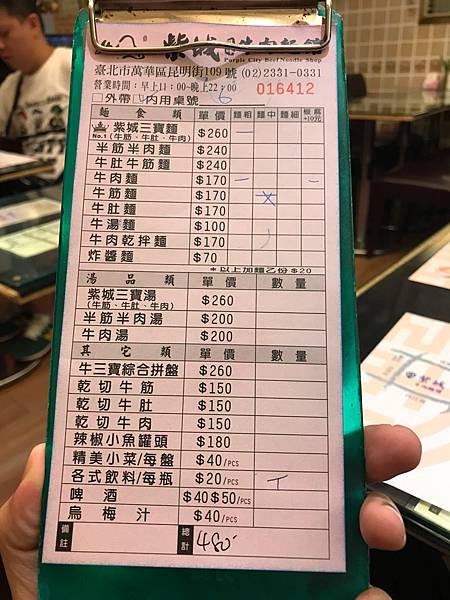 紫城牛肉麵館
Purple City Beef Noodle Shop
臺北市萬華區昆明街109號 (02)2331-0331
營業時間：早上11：00-晚上22：00 016412
□外帶 □內用桌號 6
麵食類 單價 麵粗 麵中 麵細 椒麻+10元
紫城三寶麵 $260 一
No.1 (牛筋、牛肚、牛肉)
半筋半肉麵 $240
牛肚牛筋麵 $240
牛肉麵 $170 一 一
牛筋麵 $170
牛肚麵 $170
牛湯麵 $100
牛肉乾拌麵 $170
炸醬麵 $70
*以上加麵乙份$20
湯品類 單價 數量
紫城三寶湯 $260
(牛筋、牛肚、牛肉)
半筋半肉湯 $200
牛肉湯 $200
其它類 單價 數量
牛三寶綜合拼盤 $260
乾切牛筋 $150
乾切牛肚 $150
乾切牛肉 $150
辣椒小魚罐頭 $180
精美小菜/每盤 $40/PCS
各式飲料/每瓶 $20/PCS
啤酒 $40 $50/PCS
烏梅汁 $40/PCS
備註 總計 480
紫城